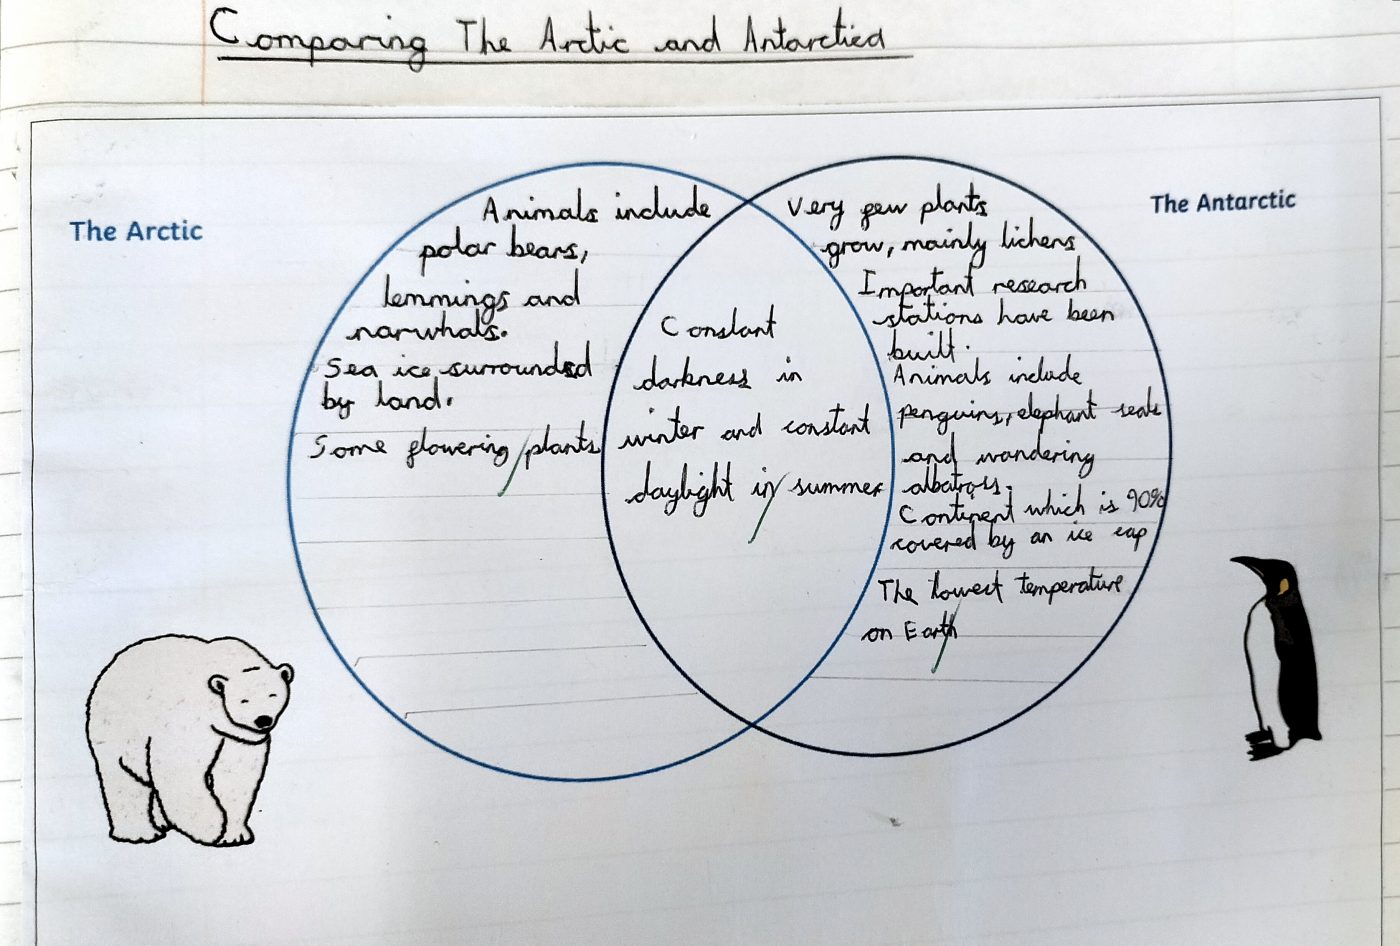 Comparing The Arctic and Antarctica
The Arctic
Animals include
polar bears,
lemmings and
narwhals.
Sea ice surrounded
by land.
Some flowering plants
Constant
darkness in
winter and constant
daylight in summer
The Antarctic
Very few plants
grow, mainly lichens
Important research
stations have been
built.
Animals include
penguins, elephant seals
and wandering
albatross.
Continent which is 90%
covered by an ice cap
The lowest temperature
on Earth